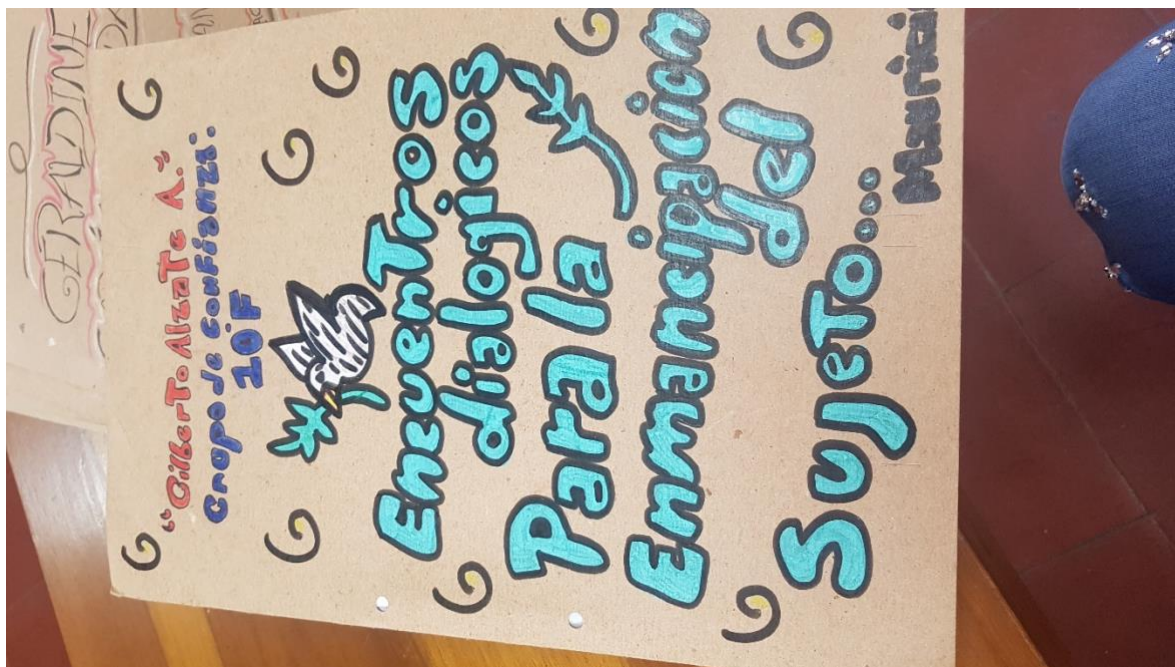 GERALDINE
"Gilberto Alzate A."
Grupo de confianza:
10F
Encuentros
dialogicos
Para la
Enmancipacion
del
Sujeto...